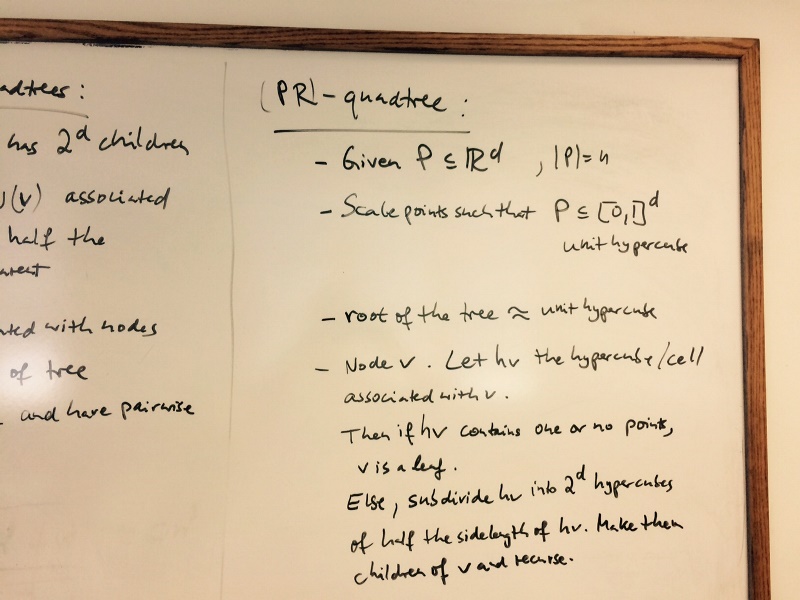 adtrees :
has 2^d children
(v) associated
half the
arent
ted with nodes
of tree
and have pairwise
(PR)-quadtree :
- Given P ⊆ ℝ^d , |P|= n
- Scale points such that P ⊆ [0,1]^d
unit hypercube
- root of the tree ≈ unit hypercube
- Node v. Let hv the hypercube/cell
associated with v.
Then if hv contains one or no points,
v is a leaf.
Else, subdivide hv into 2^d hypercubes
of half the sidelength of hv. Make them
children of v and recurse.